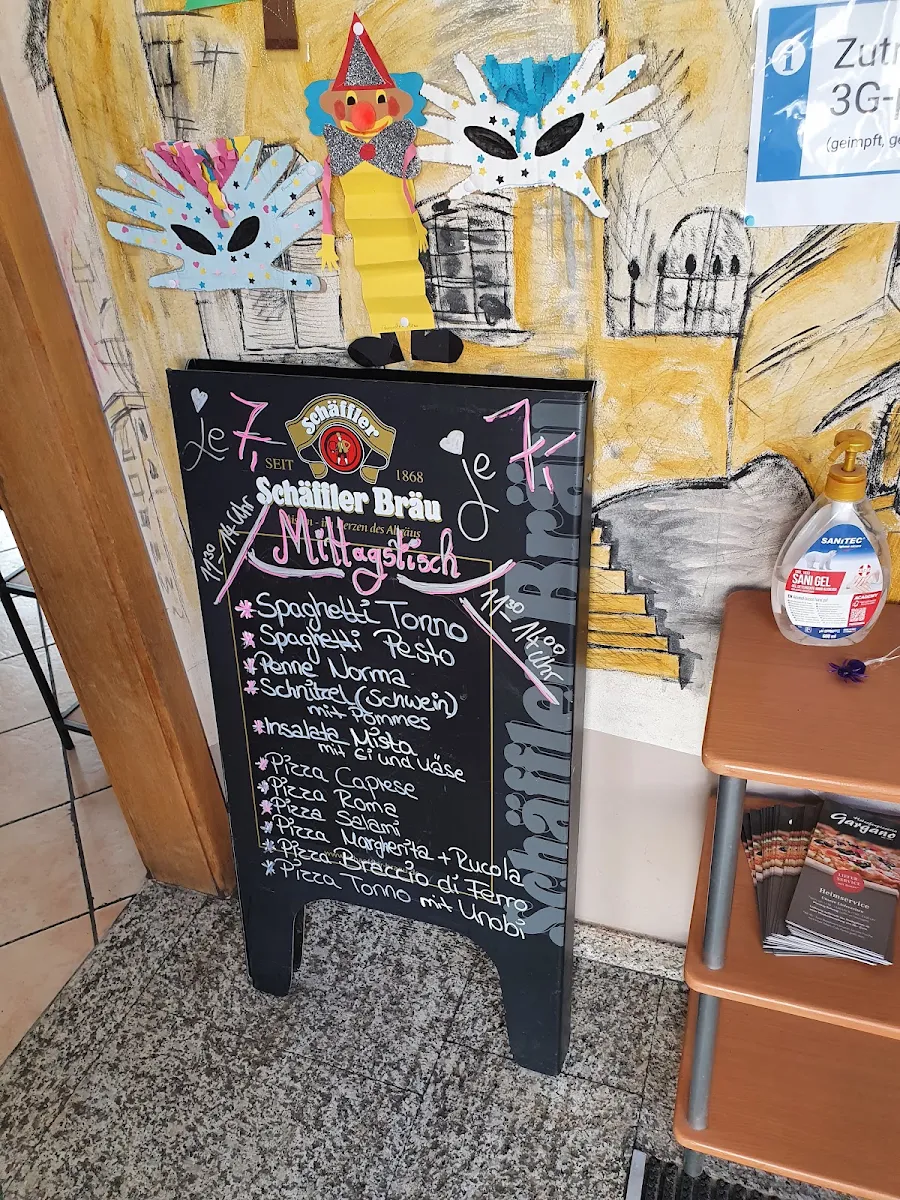 i
Zutr
3G-
(geimpft, ge
Schäffler
je 7,-
SEIT 1868
je 7,-
Schäffler Bräu
erzen des Allgäus
Mittagstisch
11³⁰ - 14 Uhr
11³⁰ - 14⁰⁰ Uhr
* Spaghetti Tonno
* Spaghetti Pesto
* Penne Norma
* Schnitzel (Schwein)
mit Pommes
* Insalata Mista
mit Ei und Käse
* Pizza Caprese
* Pizza Roma
* Pizza Salami
* Pizza Margherita + Rucola
* Pizza Braccio di Ferro
* Pizza Tonno mit Unobi
Schäffler Bräu
SANiTEC
SANI GEL
Gargano
Heimservice